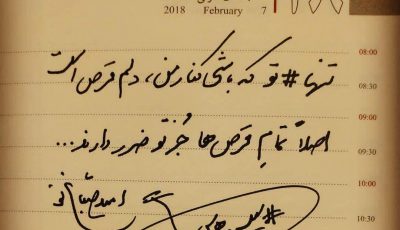 2018 February 7
08:00
تنها # تو که باشی کنار من، دلم قرص است
08:30
09:00
اصلاً تمامِ قرص ها جُز تو ضرر دارند...
09:30
10:00
امید صباغ نو
10:30